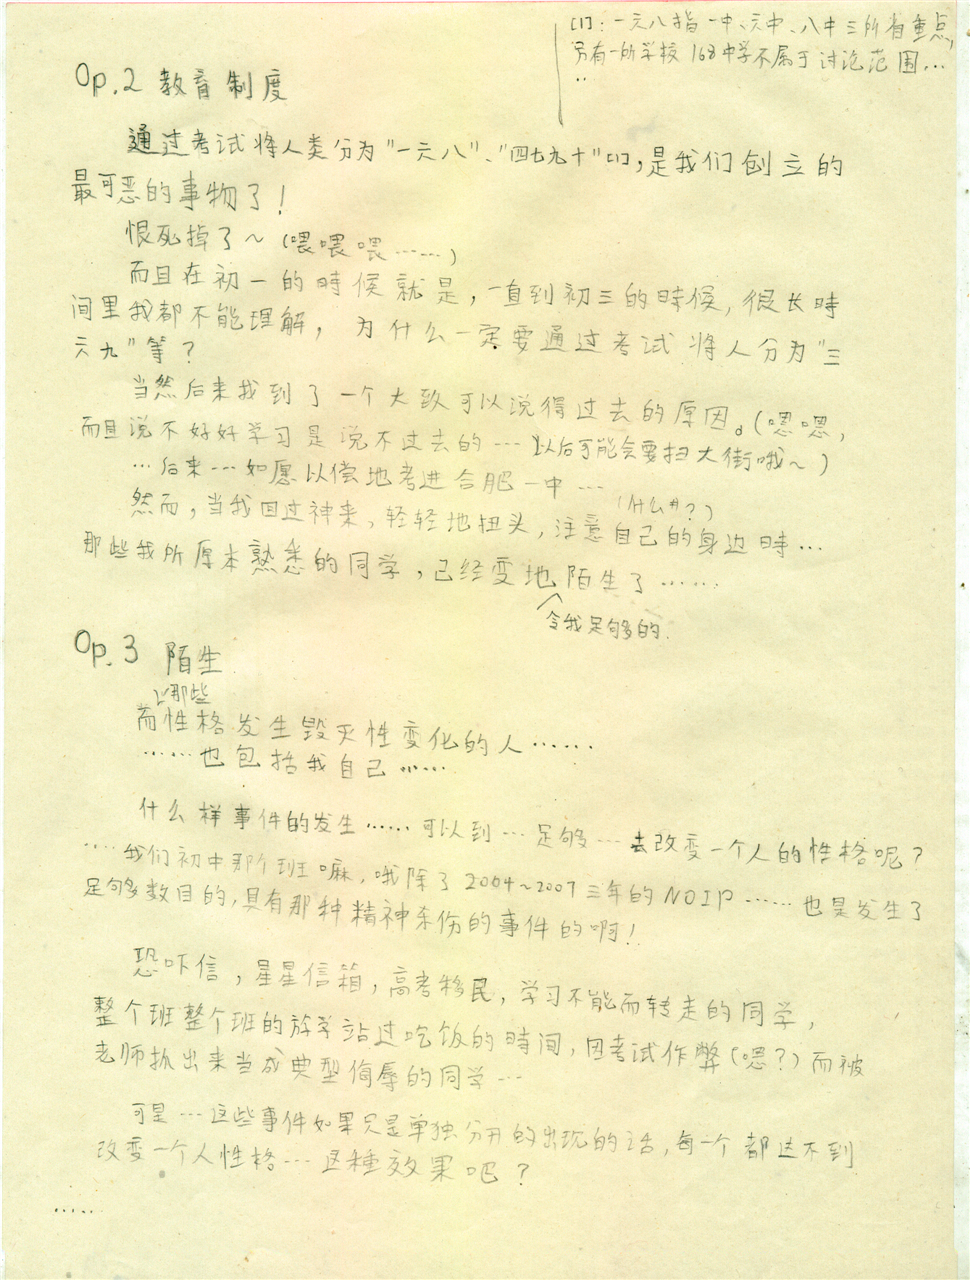 [1]: 一六八指一中、六中、八中三所省重点,
另有一所学校 168中学不属于讨论范围...
..
Op.2 教育制度
通过考试将人类分为"一六八"、"四七九十"[1],是我们创立的
最可恶的事物了!
恨死掉了~(喂喂喂……)
而且在初一的時候就是,一直到初三的時候,很长時
间里我都不能理解,为什么一定要通过考试将人分为"三
六九"等?
当然后来找到了一个大致可以说得过去的原因。(嗯嗯,
而且说不好好学习是说不过去的…以后可能会要扫大街哦~)
…后来…如愿以偿地考进合肥一中…
(什么啊?)
然而,当我回过神来,轻轻地扭头,注意自己的身边時…
那些我所原本熟悉的同学,已经变地陌生了……
令我足够的.
Op.3 陌生
那些
而性格发生毁灭性变化的人……
……也包括我自己……
什么样事件的发生……可以到…足够…去改变一个人的性格呢?
…我们初中那个班嘛,哦除了2004~2007三年的NOIP……也是发生了
足够多数目的,具有那种精神杀伤的事件的啊!
恐吓信,星星信箱,高考移民,学习不能而转走的同学,
整个班整个班的放学站过吃饭的時间,因考试作弊(嗯?)而被
老师抓出来当成典型侮辱的同学…
可是…这些事件如果只是单独分开的出现的话,每一个都达不到
改变一个人性格…这種效果吧?
……